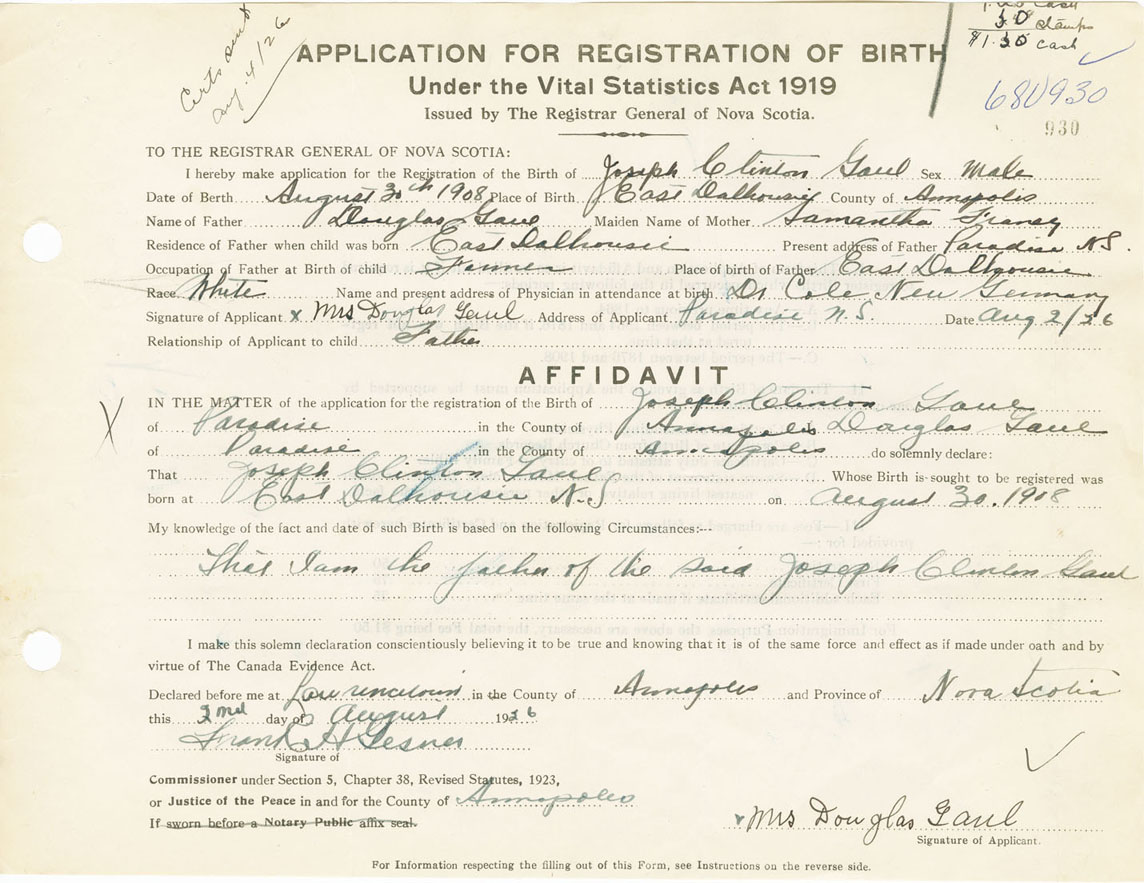 Certs sent
Aug. 4/26
1.00 cash
30 stamps
$1.30 cash
APPLICATION FOR REGISTRATION OF BIRTH
Under the Vital Statistics Act 1919
Issued by The Registrar General of Nova Scotia.
680930
930
TO THE REGISTRAR GENERAL OF NOVA SCOTIA:
I hereby make application for the Registration of the Birth of Joseph Clinton Gaul Sex Male
Date of Berth August 30th 1908 Place of Birth East Dalhousie County of Annapolis
Name of Father Douglas Gaul Maiden Name of Mother Samantha Franey
Residence of Father when child was born East Dalhousie Present address of Father Paradise N.S.
Occupation of Father at Birth of child Farmer Place of birth of Father East Dalhousie
Race White Name and present address of Physician in attendance at birth Dr Cole New Germany
Signature of Applicant x Mrs Douglas Gaul Address of Applicant Paradise N.S. Date Aug 2/26
Relationship of Applicant to child Father
AFFIDAVIT
X IN THE MATTER of the application for the registration of the Birth of Joseph Clinton Gaul
of Paradise in the County of Annapolis Douglas Gaul
of Paradise in the County of Annapolis do solemnly declare:
That Joseph Clinton Gaul Whose Birth is sought to be registered was
born at East Dalhousie N.S on August 30. 1908
My knowledge of the fact and date of such Birth is based on the following Circumstances:--
That I am the father of the said Joseph Clinton Gaul
I make this solemn declaration conscientiously believing it to be true and knowing that it is of the same force and effect as if made under oath and by
virtue of The Canada Evidence Act.
Declared before me at Lawrencetown in the County of Annapolis and Province of Nova Scotia
this 2nd day of August 1926
Frank H Gesner
Signature of
Commissioner under Section 5, Chapter 38, Revised Statutes, 1923,
or Justice of the Peace in and for the County of Annapolis
If sworn before a Notary Public affix seal.
x Mrs Douglas Gaul
Signature of Applicant.
For Information respecting the filling out of this Form, see Instructions on the reverse side.